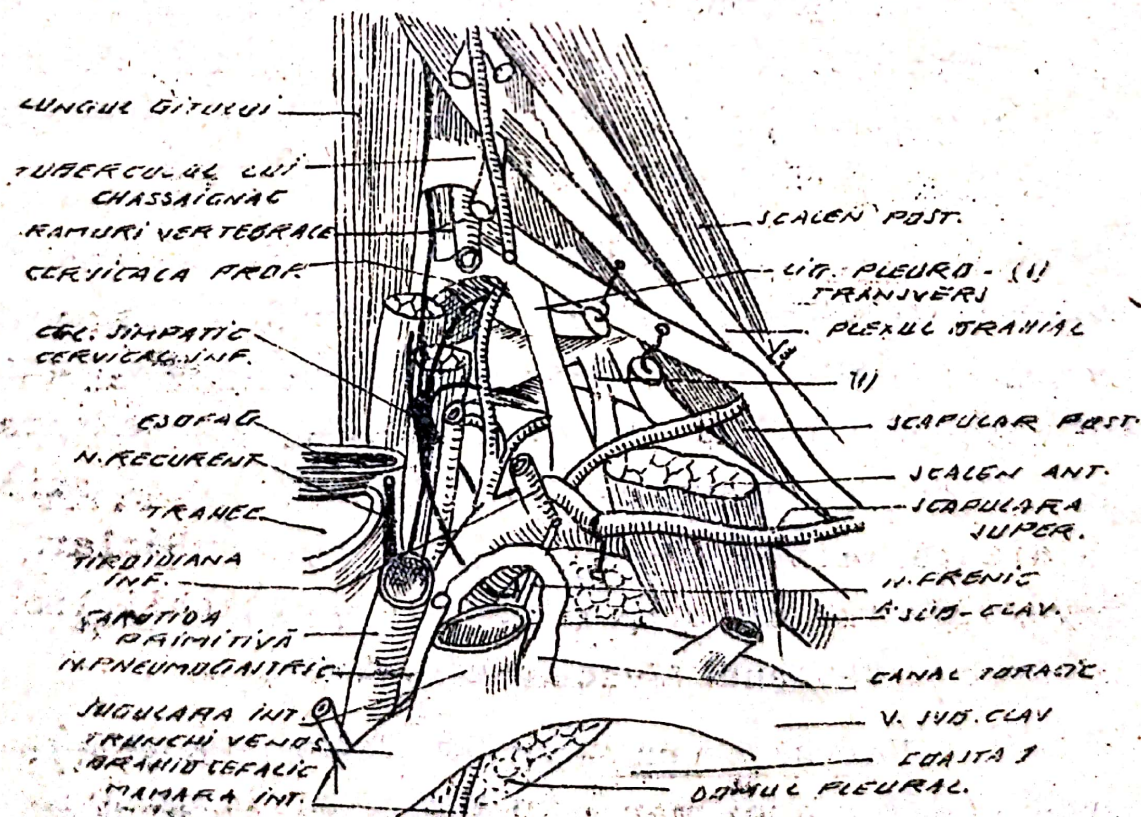 LUNGUL GITULUI
TUBERCULUL LUI
CHASSAIGNAC
RAMURI VERTEBRALE
CERVICALA PROF.
GGL. SIMPATIC
CERVICAL INF.
ESOFAG
N. RECURENT
TRAHEE
TIROIDIANA
INF.
CAROTIDA
PRIMITIVĂ
N. PNEUMOGASTRIC
JUGULARA INT.
TRUNCHI VENOS
BRAHIOCEFALIC
MAMARA INT.
SCALEN POST.
LIG. PLEURO - (1)
TRANSVERS
PLEXUL BRAHIAL
(1)
SCAPULAR POST.
SCALEN ANT.
SCAPULARA
SUPER.
N. FRENIC
A. SUB-CLAV.
CANAL TORACIC
V. SUB.CLAV
COASTA I
DOMUL PLEURAL.